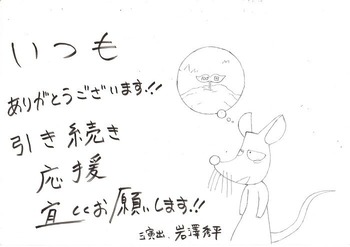 いつも
ありがとうございます!!
引き続き
応援
宜しくお願いします!!
演出 岩澤秀平